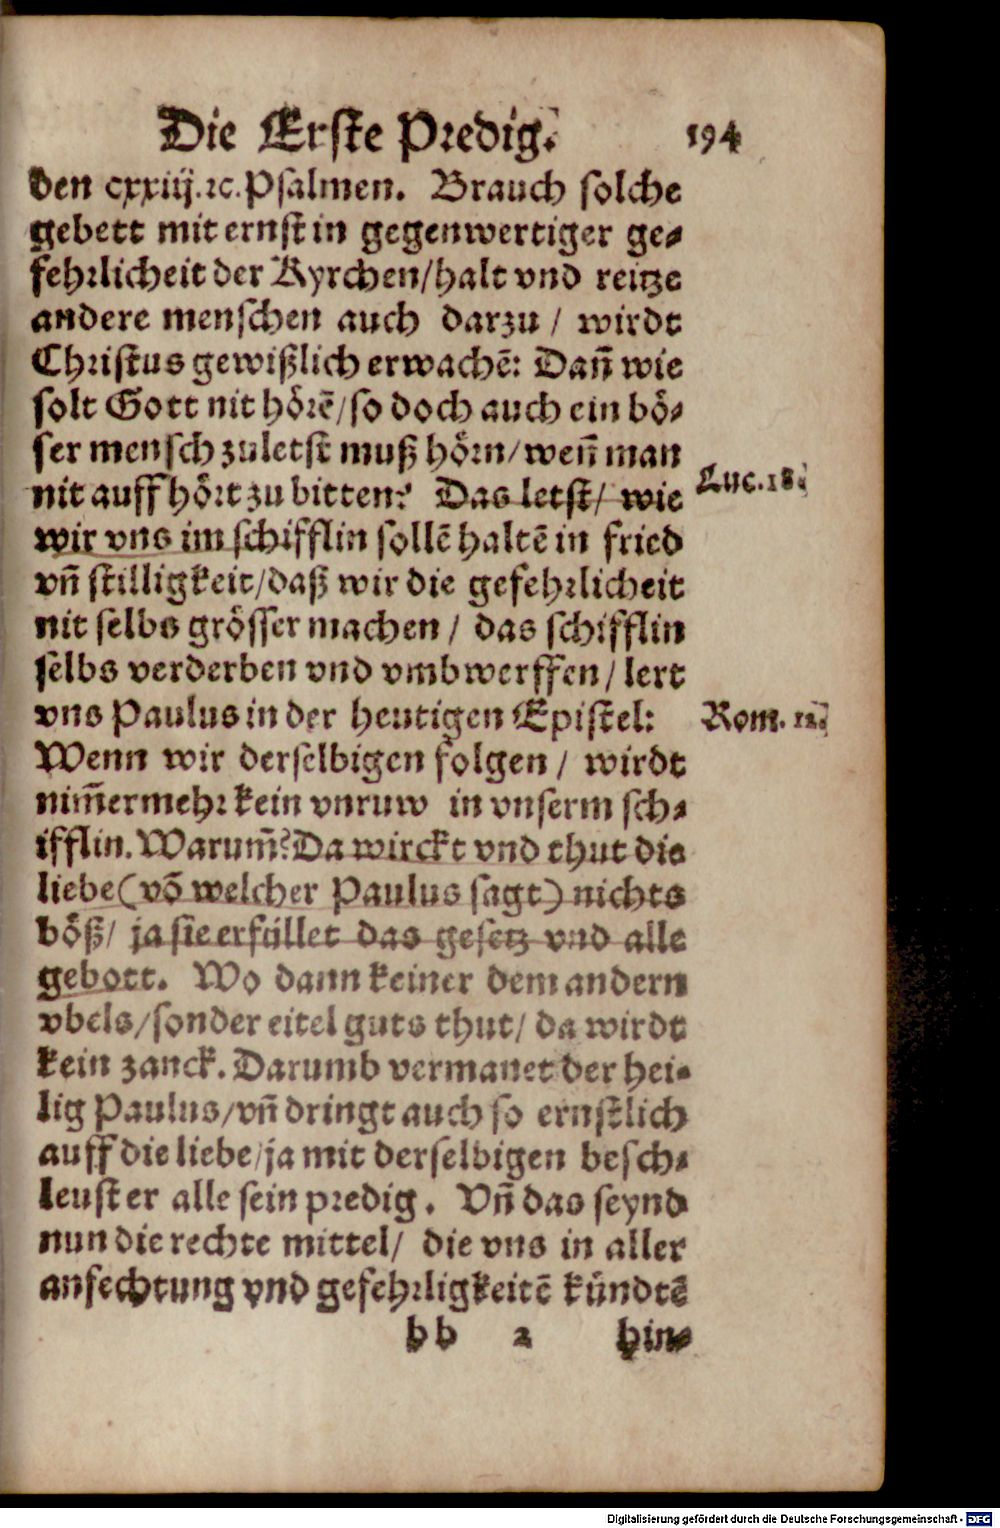 Die Erste Predig. 194
den cxxiij.ꝛc.Psalmen. Brauch solche
gebett mit ernst in gegenwertiger ge⸗
fehrlicheit der Kyrchen/halt vnd reitze
andere menschen auch darzu / wirdt
Christus gewißlich erwachẽ: Dañ wie
solt Gott nit hörẽ/so doch auch ein bö⸗
ser mensch zuletst muß hörn/weñ man
nit auff hört zu bitten? Das letst/ wie
Luc.18.
wir vns im schifflin sollẽ haltẽ in fried
vñ stilligkeit/daß wir die gefehrlicheit
nit selbs grösser machen / das schifflin
selbs verderben vnd vmbwerffen / lert
vns Paulus in der heutigen Epistel:
Rom. 12.
Wenn wir derselbigen folgen / wirdt
nim̃ermehr kein vnruw in vnserm sch⸗
ifflin. Warum̃? Da wirckt vnd thut die
liebe (võ welcher Paulus sagt) nichts
böß/ ja sie erfüllet das gesetz vnd alle
gebott. Wo dann keiner dem andern
vbels/sonder eitel guts thut/ da wirdt
kein zanck. Darumb vermanet der hei⸗
lig Paulus/vñ dringt auch so ernstlich
auff die liebe/ja mit derselbigen besch⸗
leust er alle sein predig. Vñ das seynd
nun die rechte mittel/ die vns in aller
anfechtung vnd gefehrligkeitẽ kündtẽ
bb 2 hin⸗
Digitalisierung gefördert durch die Deutsche Forschungsgemeinschaft - DFG